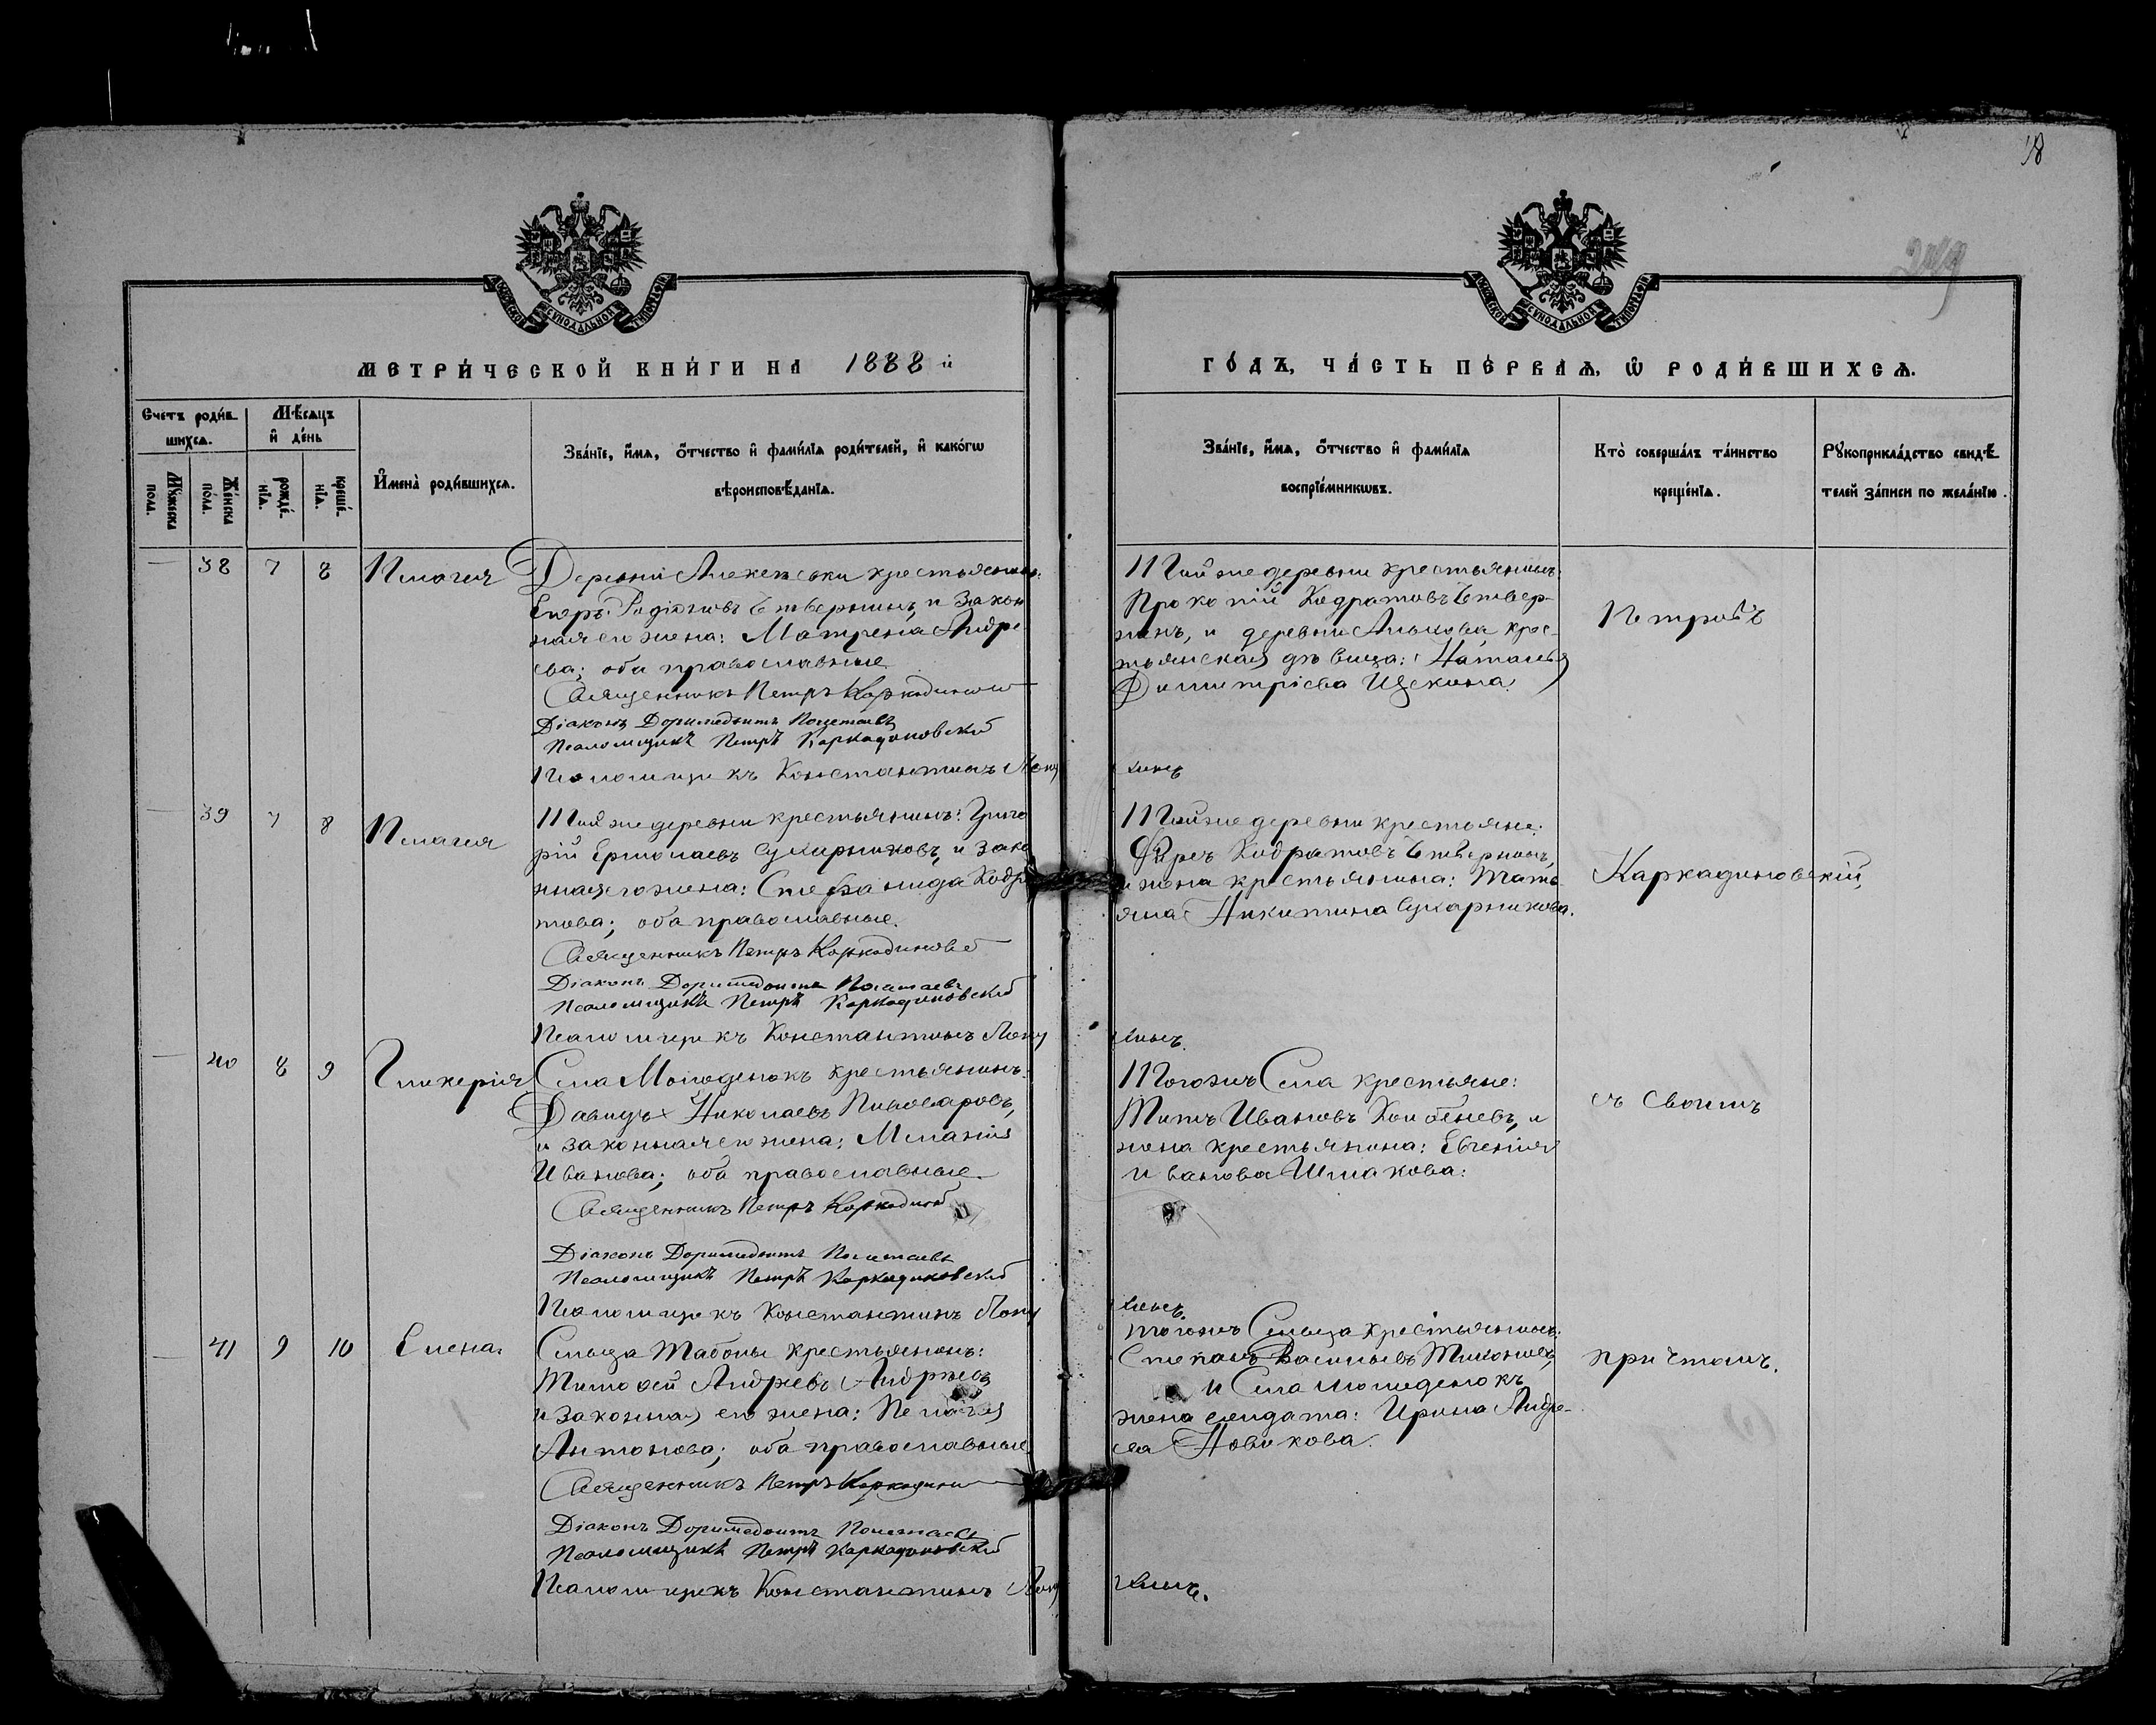 18
249
МОСКОВСКОЙ СУНОДАЛЬНОЙ ТИПОГРАФІИ
МОСКОВСКОЙ СУНОДАЛЬНОЙ ТИПОГРАФІИ
МЕТРИ́ЧЕСКОЙ КНИ́ГИ НА 1888 й
ГО́ДЪ, ЧА́СТЬ ПЕ́РВАѦ, Ѡ҆ РОДИ́ВШИХСѦ.
Счетъ роди́в
шихсѧ.
Мѣ́сѧцъ
и҆ де́нь
Мꙋ́жеска
пола.
Же́нска
по́ла.
рожде́
нїѧ.
креще́
нїѧ.
И҆мена̀ роди́вшихсѧ.
Зва́нїе, и҆́мѧ, ѻ҆́тчество и҆ фами́лїѧ роди́телей, и҆ како́гѡ
вѣроисповѣ́данїѧ.
Зва́нїе, и҆́мѧ, ѻ҆́тчество и҆ фами́лїѧ
воспрїе́мникѡвъ.
Кто̀ соверша́лъ та́инство
креще́нїѧ.
Рꙋкоприкла́дство свидѣ́
телей за́писи по жела́нїю.
38 7 8 Пелагея
Деревни крестьянинъ:
Егоръ Четвернинъ, и закон
ная его жена: Матрена Андре
ева; оба православные
Священникъ Петръ
Діаконъ Доримедонтъ Полетаевъ
Псаломщикъ Петръ Каркадиновскій
Псаломщикъ Константинъ Лону
хинъ
Той же деревни крестьянинъ:
Прокопій Кодратовъ Четвер-
нинъ, и деревни крес-
тьянская дѣвица: Наталья
Димитріева Щекина.
Петровъ
39 7 8 Пелагея
Той же деревни крестьянинъ: Григо
рій Ермолаевъ Сухарниковъ, и зако
нная его жена: Стефанида Кодра
това; оба православные.
Священникъ Петръ Каркадиновс
Діаконъ Доримедонтъ Полетаевъ
Псаломщикъ Петръ Каркадиновскій
Псаломщикъ Константинъ Лону
хинъ.
Той же деревни крестьяне:
Кодратовъ Четвернинъ,
и жена крестьянина: Татья
яна Никитина Сухарникова.
Каркадиновскій,
40 8 9 Гликерія
Села Молоденокъ крестьянинъ:
Давидъ Николаевъ Пивоваровъ,
и законная его жена: Меланія
Иванова; оба православные
Священникъ Петръ
Діаконъ Доримедонтъ Полетаевъ
Псаломщикъ Петръ Каркадиновскій
Псаломщикъ Константинъ Лону
хинъ.
Тогожъ Села крестьяне:
Титъ Ивановъ и
жена крестьянина: Евгенія
Иванова Шмакова:
съ своимъ
41 9 10 Елена.
Сельца Таболы крестьянинъ:
Тимофей Андреевъ Андреевъ
и законная его жена: Пелагея
Антонова; оба православные.
Священникъ Петръ
Діаконъ Доримедонтъ Полетаевъ
Псаломщикъ Петръ Каркадиновскій
Псаломщикъ Константинъ Лону
хинъ.
тогожъ Сельца крестьянинъ:
Степанъ Васильевъ
и Села Молоденокъ
жена солдата: Ирина Андре-
ева Новикова.
причтомъ.